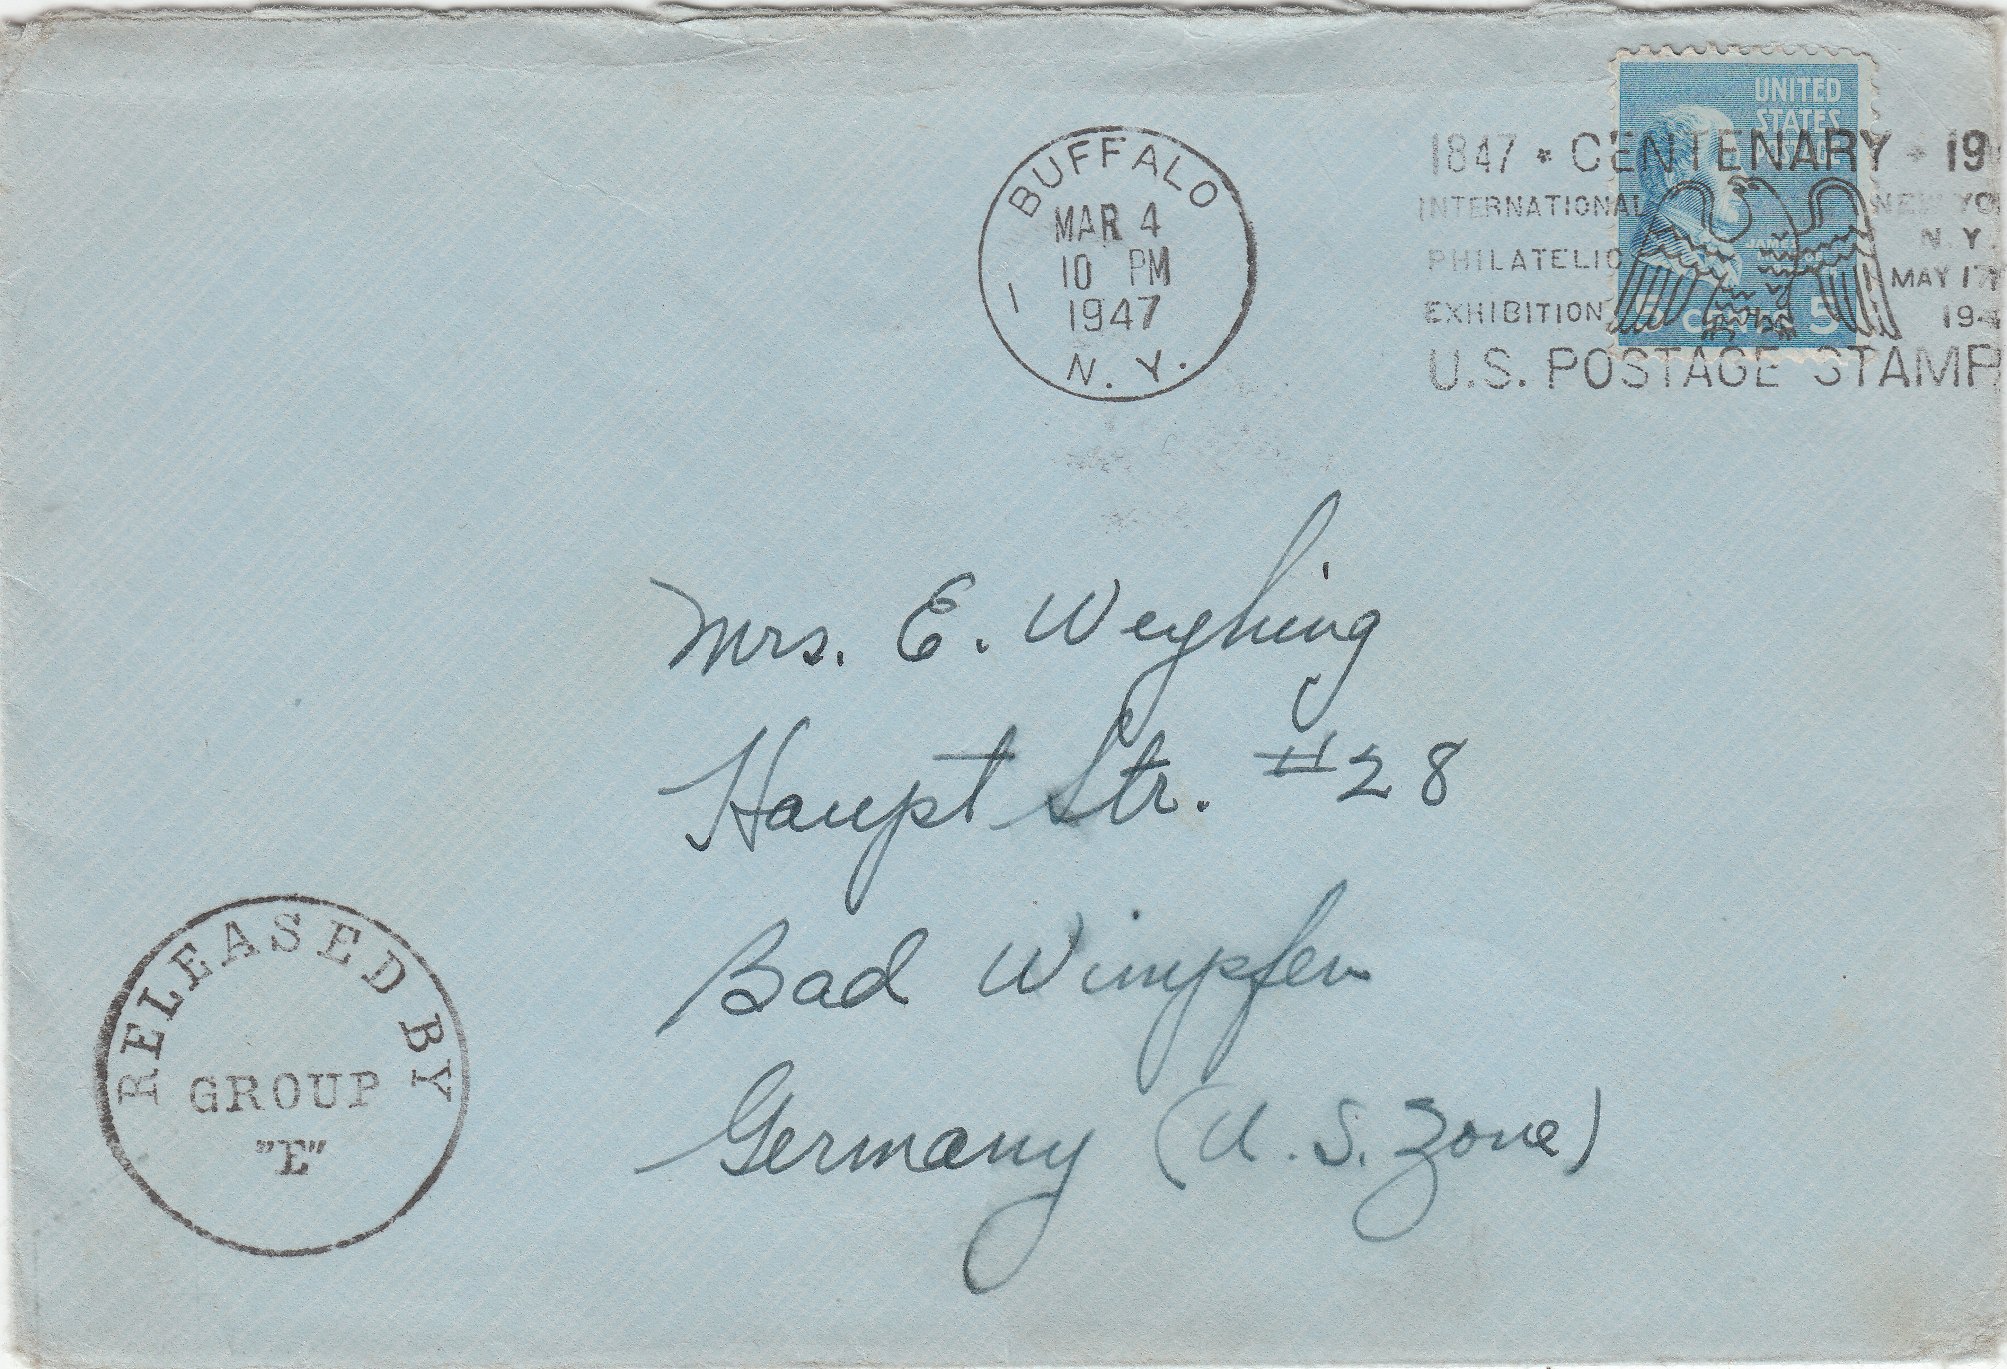 BUFFALO
MAR 4
10 PM
1947
1
N. Y.
UNITED
STATES
POSTAGE
CENTS 5
1847 * CENTENARY * 19
INTERNATIONAL NEW YO
PHILATELIC N. Y.
EXHIBITION MAY 17
194
U.S. POSTAGE STAMP
Mrs. E. Weghing
Haupt Str. #28
Bad Wimpfen
Germany (U. S. Zone)
RELEASED BY
GROUP
"E"